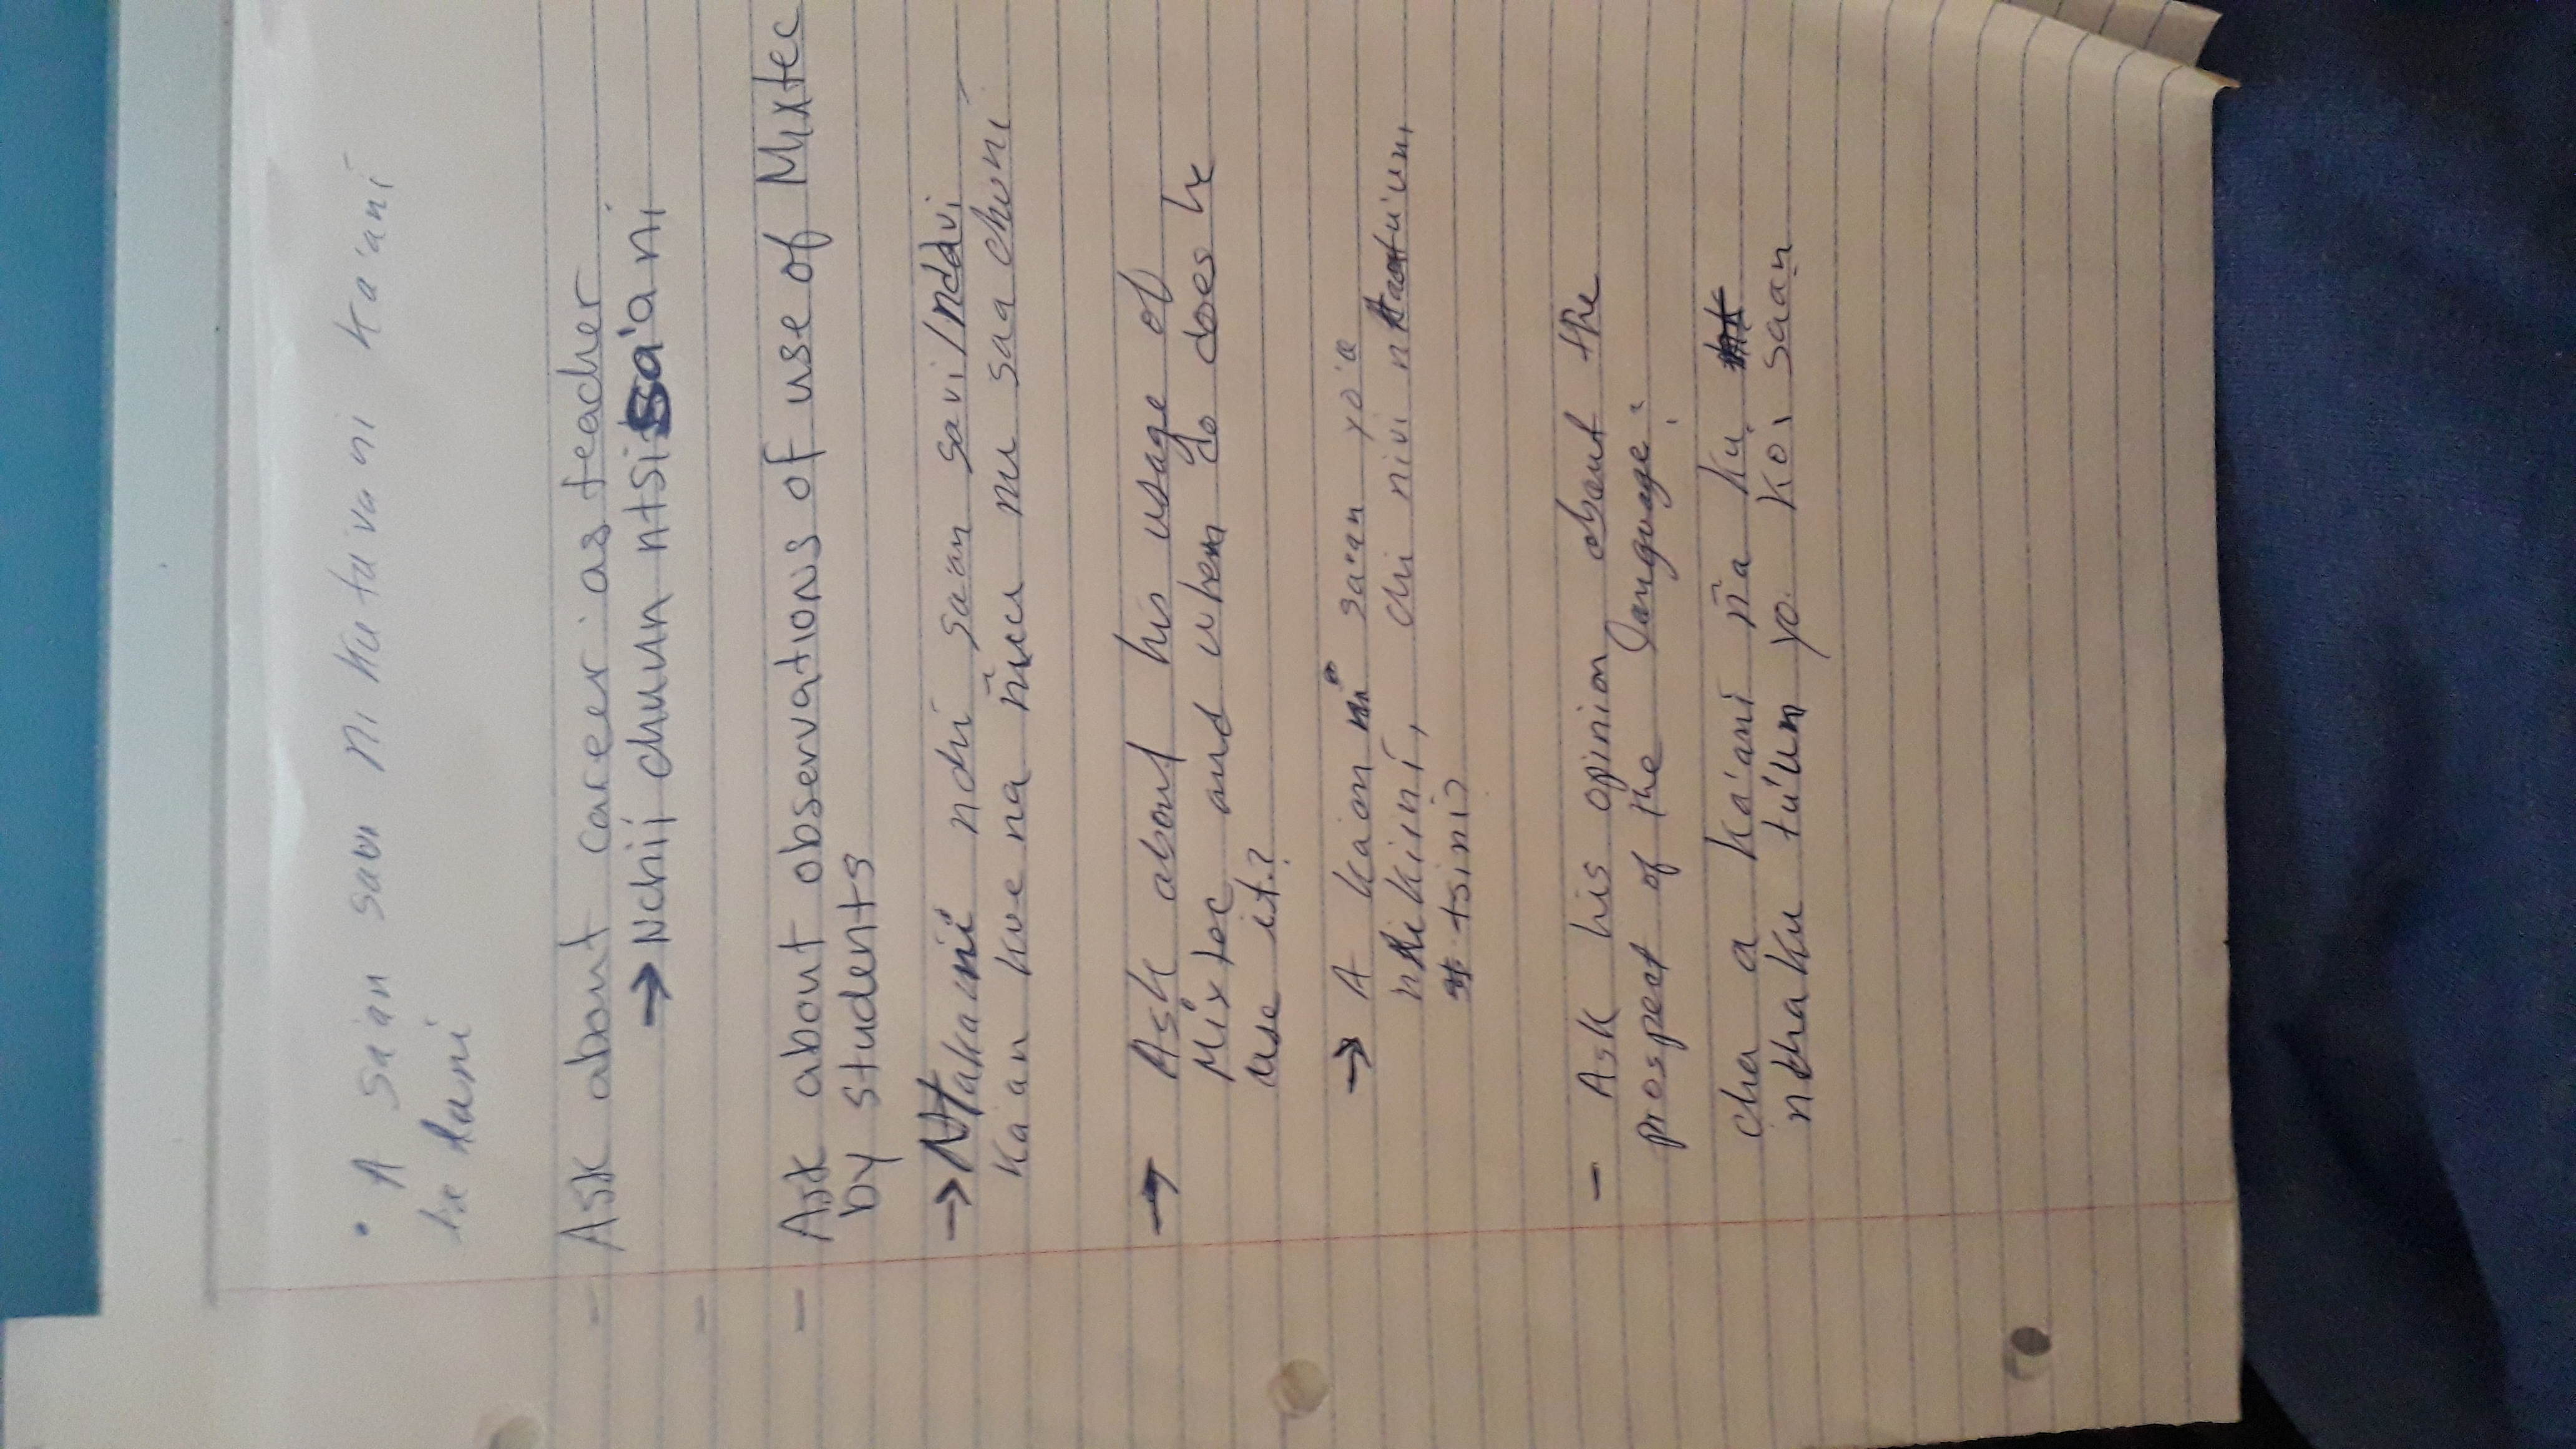 • A sa'an savi ni kuta'vani ka'ani
ta tani
- Ask about career as teacher
→ Nchii chuun ntsisa'a ni
-
- Ask about observations of use of Mixtec
by students
→ Ntakaini ndu sa'an savi/ndavi
ka'an kue na ñuu nu saa chuni
→ Ask about his usage of
Mixtec and when do does he
use it?
→ A ka'an ni sa'an yo'o
ntikiini, chi nivi
tsini?
- Ask his opinion about the
prospect of the language?
cha a ka'ani ña ku
nchaku tu'un yo koi saan